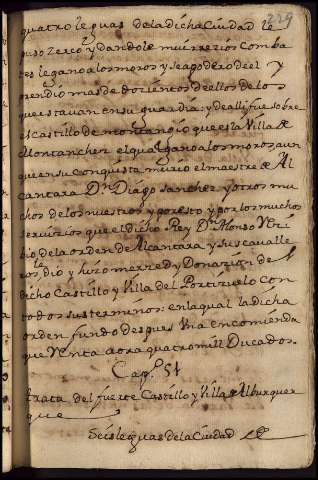 229
quatro leguas de la dicha Ciudad le
puso Zerco y dandole muirrezios comba
tes le gano a los moros y se apodero de el y
prendio mas de dozientos de ellos de los
que estauan en su guardia: y de alli fue sobre
el castillo de montangio que es la Villa de
Montanchez el qual gano a los moros, aun
que en su conquista murio el maestre de Al
cantara Dn. Diago sanchez y otros mu
chos de los nuestros y por esto y por los muchos
seruizios que el dicho Rey Dn. Alonso Reci
bio de la orden de Alcantara y sus cavalle
ros, le dio y hizo merzed y Donazion de el
dicho Castillo y Villa del Portezuelo con
todos sus terminos: en la qual la dicha
orden fundo despues Vna encomienda
que Renta aora quatro mill Ducados.
Cap.º 51
trata del fuerte Castillo y Villa de Alburquer
que
Seis leguas de la Ciudad de